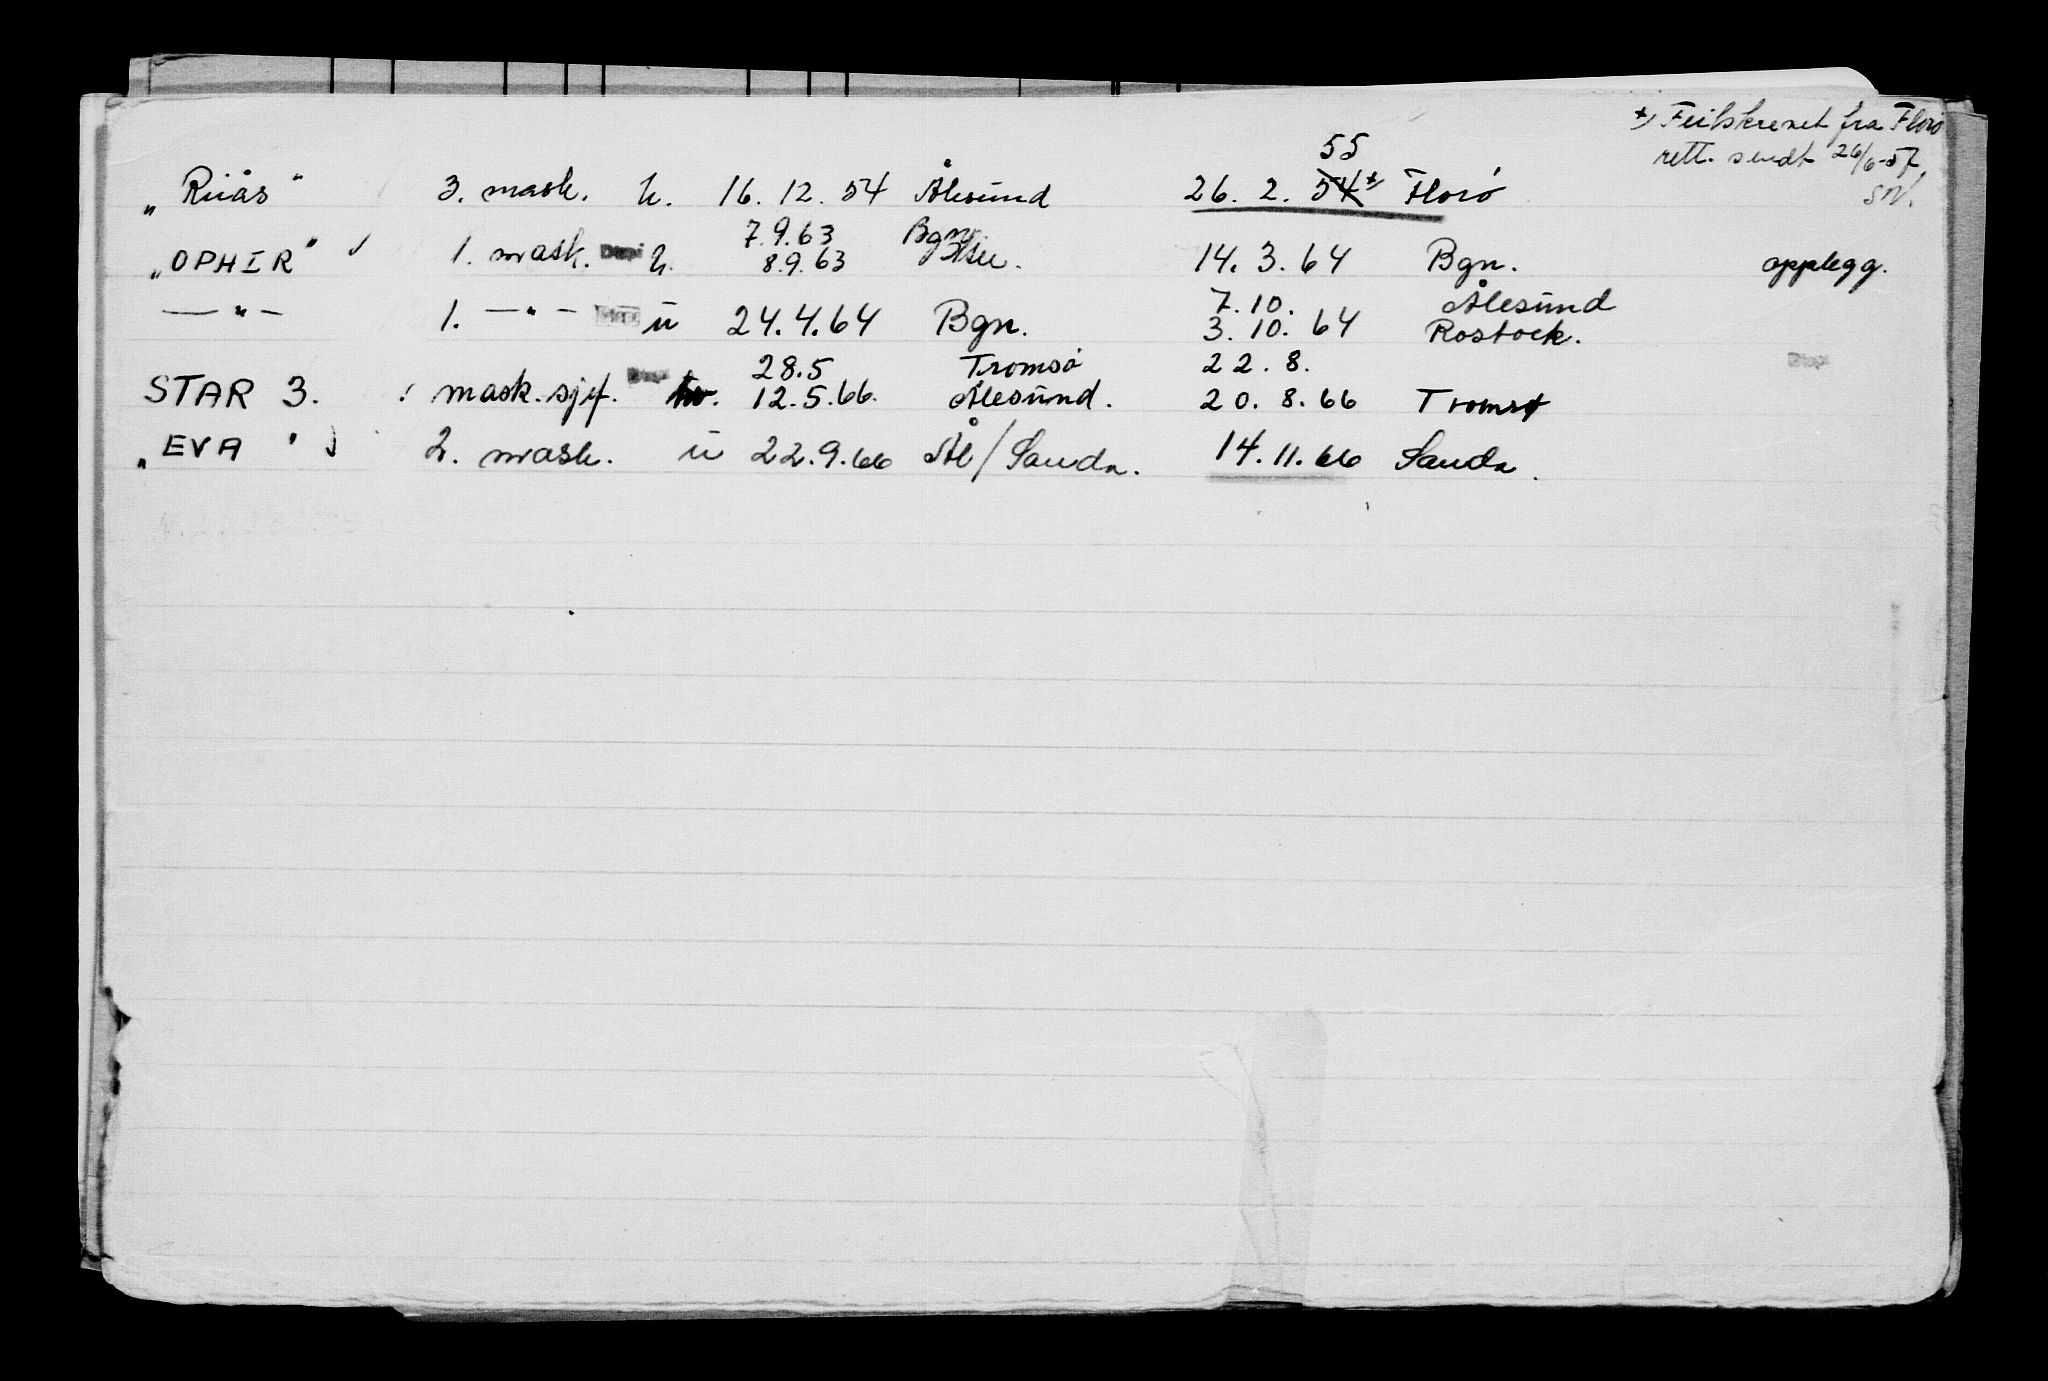 x) Feilskrevet fra Florø
rett. sendt 26/6-57
55
„Riiås" 3. mask. h. 16. 12. 54 Ålesund 26. 2. 54 x) Florø
7.9.63 Bgn.
„OPHIR" 1. mask. h. 8.9.63 14. 3. 64 Bgn. opplegg.
7.10. Ålesund
—"— 1. —"— u 24.4.64 Bgn. 3. 10. 64 Rostock.
28.5 Tromsø 22. 8.
STAR 3. mask.sjef. 12.5.66. Ålesund. 20. 8. 66 Tromsø
„EVA" 2. mask. u 22.9.66 Ål/Sauda. 14. 11. 66 Sauda.